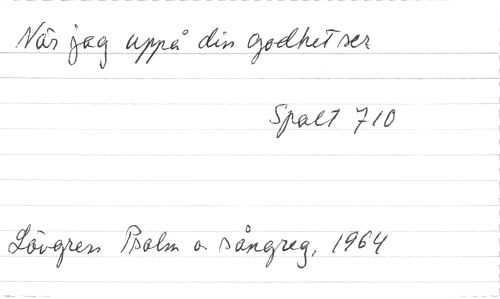 När jag uppå din godhet ser
Spalt 710
Lövgren Psalm o. sångreg, 1964